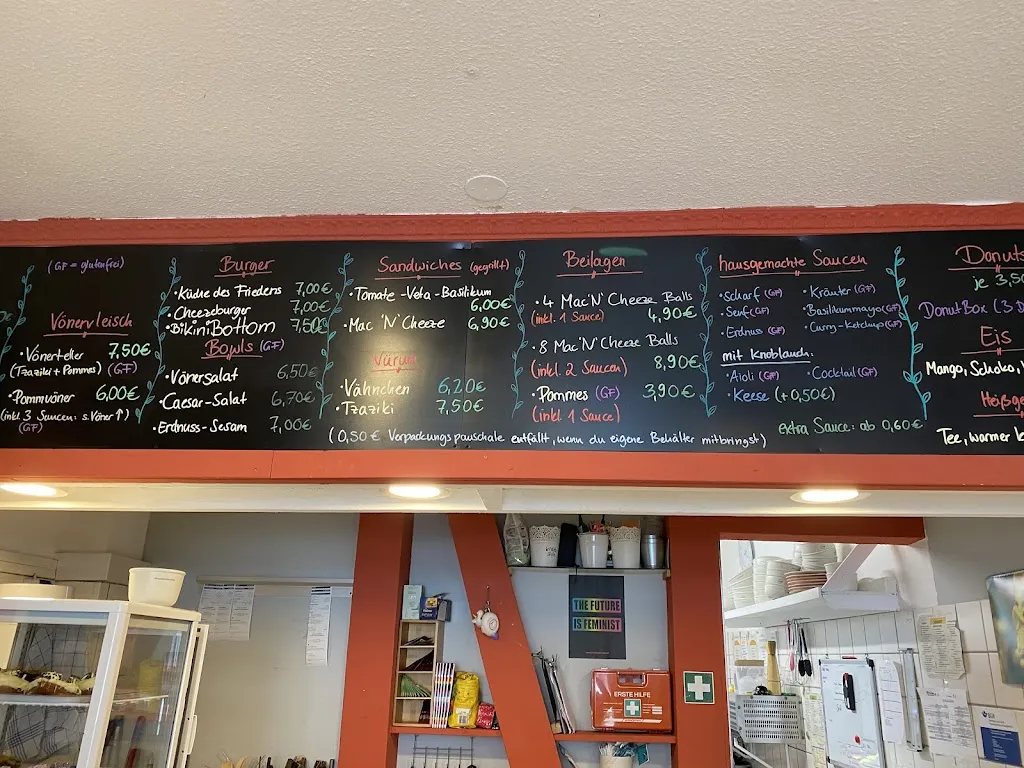 (GF = glutenfrei)
Vönervleisch
• Vönerteller 7,50€
(Tzaziki + Pommes) (GF)
• Pommvöner 6,00€
(inkl. 3 Saucen: s. Vöner ↑)
(GF)
Burger
• Küche des Friedens 7,00€
• Cheezeburger 7,00€
• Bikini Bottom 7,50€
Bowls (GF)
• Vönersalat 6,50€
• Caesar-Salat 6,70€
• Erdnuss-Sesam 7,00€
Sandwiches (gegrillt)
• Tomate-Veta-Basilikum 6,00€
• Mac 'N' Cheeze 6,90€
Vürum
• Vähnchen 6,20€
• Tzaziki 7,50€
(0,50 € Verpackungspauschale entfällt, wenn du eigene Behälter mitbringst)
Beilagen
• 4 Mac'N' Cheeze Balls
(inkl. 1 Sauce) 4,90€
• 8 Mac'N' Cheeze Balls
(inkl. 2 Saucen) 8,90€
• Pommes (GF) 3,90€
(inkl. 1 Sauce)
hausgemachte Saucen
• Scharf (GF) • Kräuter (GF)
• Senf (GF) • Basilikummayo (GF)
• Erdnuss (GF) • Curry-Ketchup (GF)
mit Knoblauch:
• Aioli (GF) • Cocktail (GF)
• Keese (+0,50€)
extra Sauce: ab 0,60€
Donuts
je 3,50
Donut Box (3 D
Eis
Mango, Schoko,
Heißge
Tee, warmer
THE FUTURE
IS FEMINIST
ERSTE HILFE